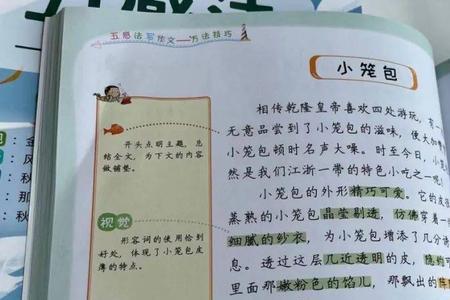 五感法写作文——方法技巧
小笼包
开头点明主题，总
结全文，为下文的内容
做铺垫。
视觉
形容词的使用恰到
好处，体现了小笼包皮
薄的特点。
相传乾隆皇帝喜欢四处游玩，有一
无意品尝到了小笼包的滋味，使大加
小笼包顿时名声大噪。时至今日，小
然是我们江浙一带的特色小吃之一呢
小笼包的外形精巧可爱。它的皮
蒸熟的小笼包晶莹剔透，仿佛穿着一
细腻的纱衣，为小笼包增添了几分
息。透过这层几近透明的皮，隐约可
里面那嫩粉色的馅儿，那飘出的
：金
：风
：秋
：那
：秋